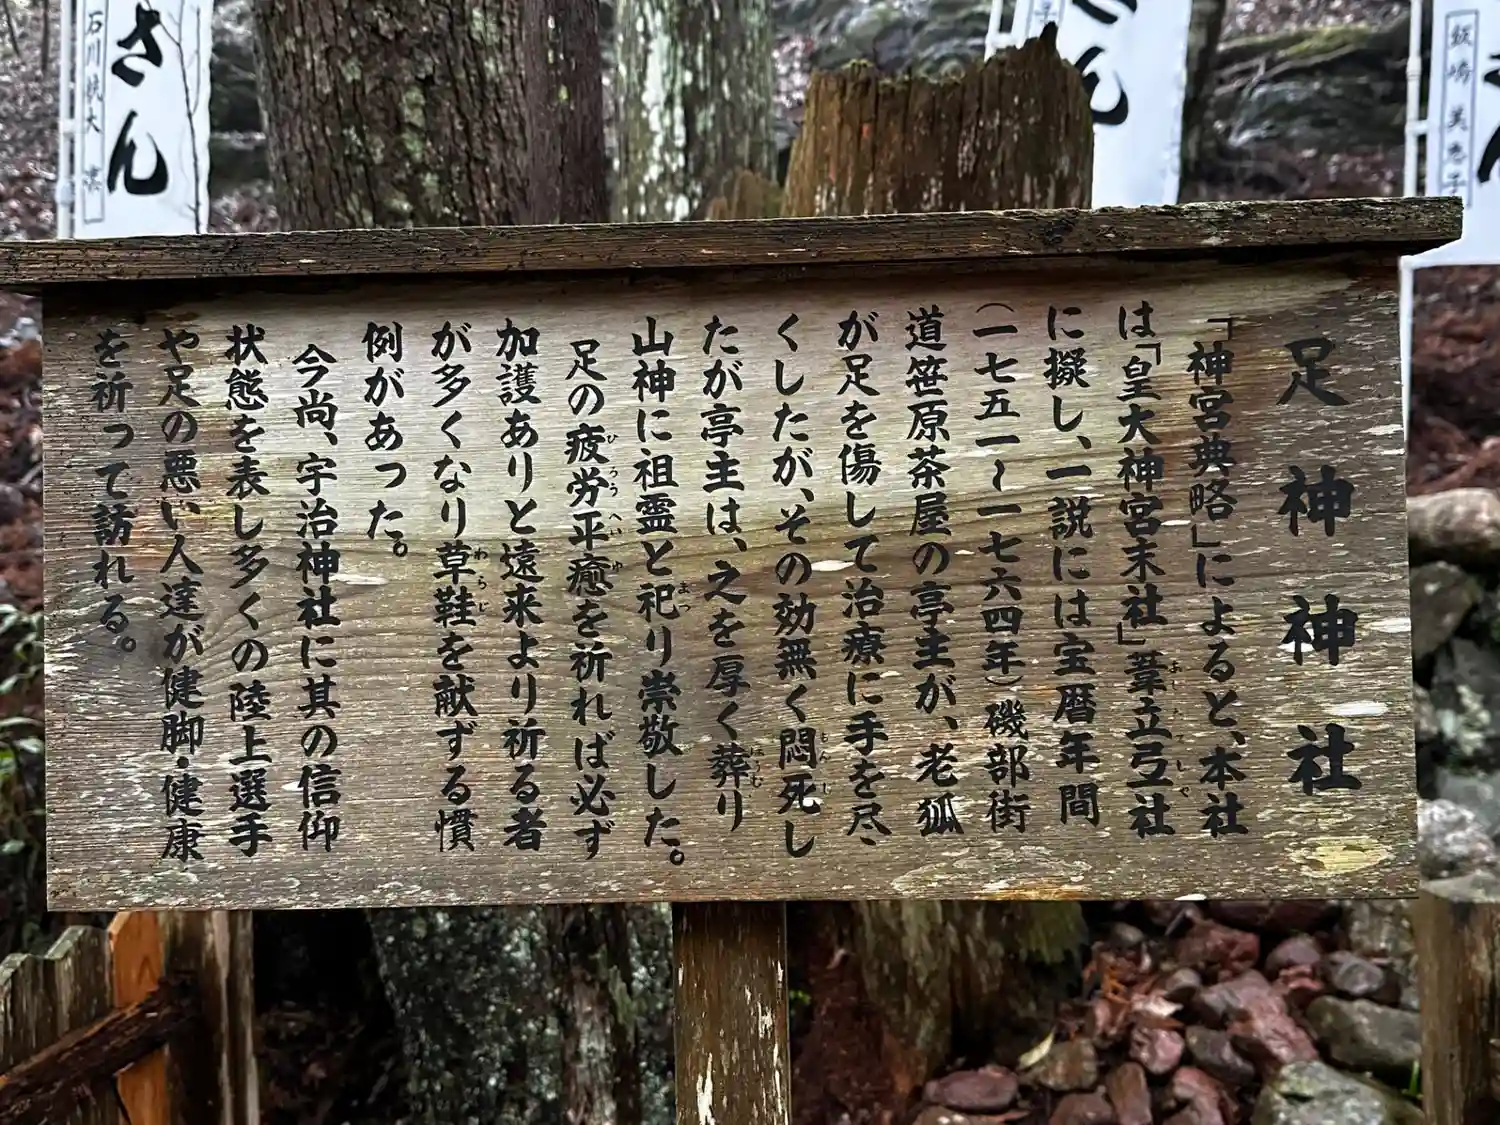 足神神社
「神宮典略」によると、本社
は「皇大神宮末社」葦立弖社
に擬し、一説には宝暦年間
（一七五一〜一七六四年）磯部街
道笹原茶屋の亭主が、老狐
が足を傷して治療に手を尽
くしたが、その効無く悶死し
たが亭主は、之を厚く葬り
山神に祖霊と祀り崇敬した。
足の疲労平癒を祈れば必ず
加護ありと遠来より祈る者
が多くなり草鞋を献ずる慣
例があった。
今尚、宇治神社に其の信仰
状態を表し多くの陸上選手
や足の悪い人達が健脚・健康
を祈って訪れる。
さん
さん